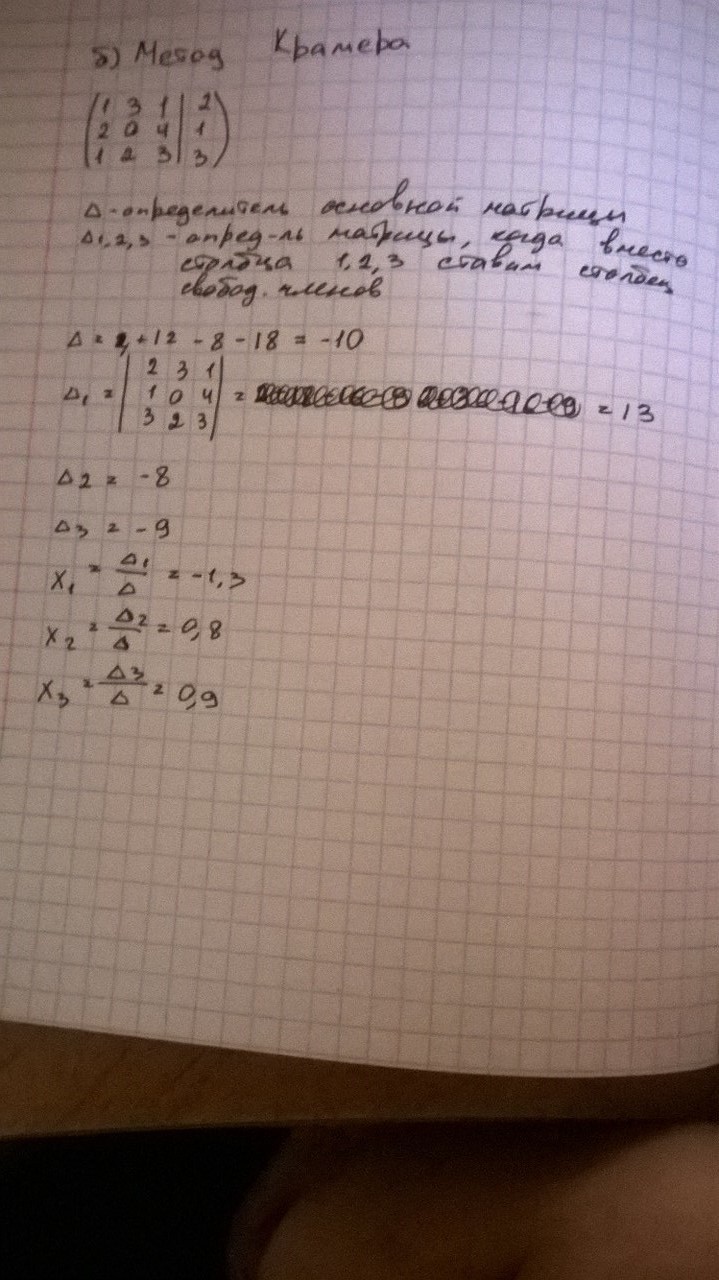 б) Метод Крамера
(1 3 1 | 2)
(2 0 4 | 1)
(1 2 3 | 3)
Δ - определитель основной матрицы
Δ1,2,3 - опред-ль матрицы, когда вместо
столбца 1,2,3 ставим столбец
свобод. членов
Δ = + 12 - 8 - 18 = -10
|2 3 1|
Δ₁ = |1 0 4| = = 13
|3 2 3|
Δ2 = -8
Δ3 = -9
X₁ = Δ₁/Δ = -1,3
X₂ = Δ2/Δ = 0,8
X₃ = Δ3/Δ = 0,9